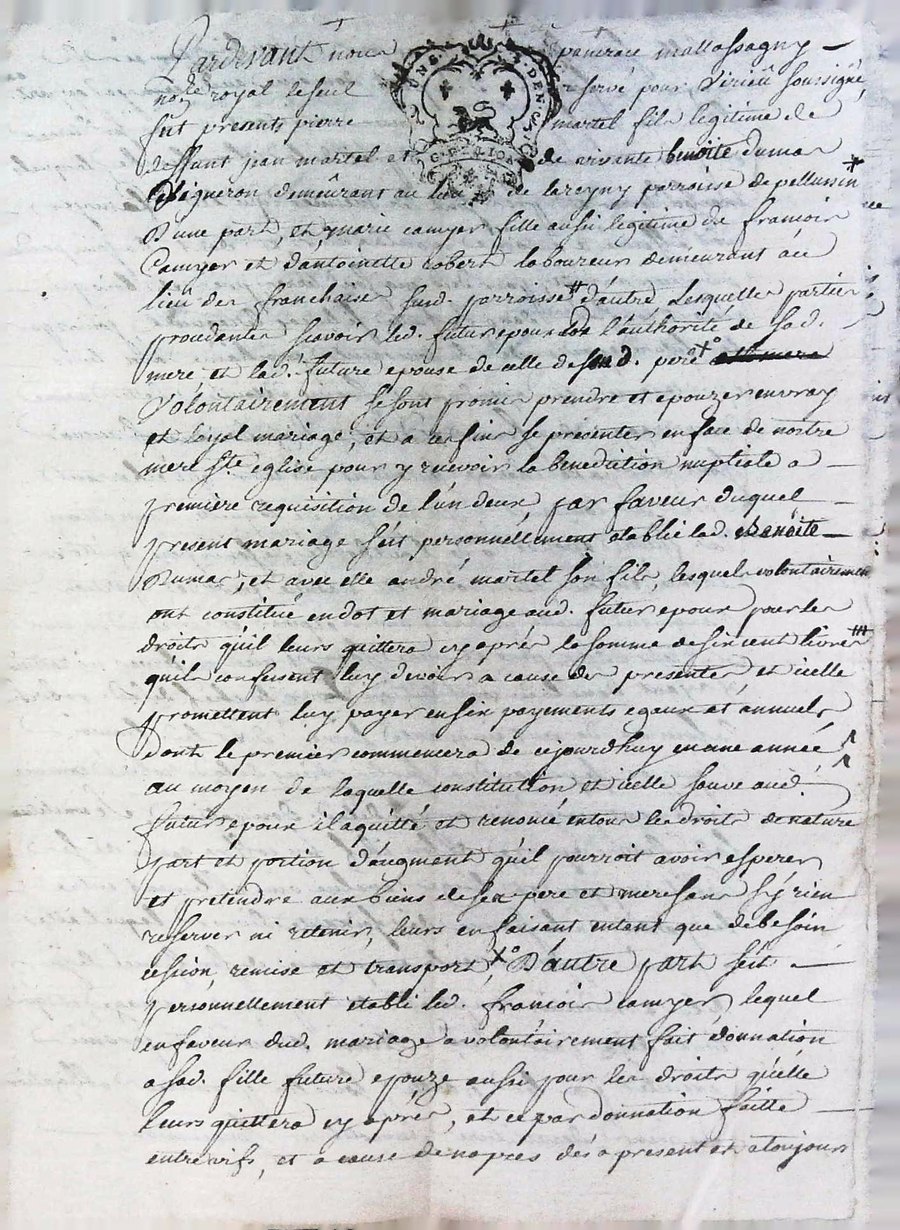 Pardevant nous pancrace mallassagny
no.re royal le seul reservé pour Virieu soussigné,
fut presents pierre martel fils legitime de
deffunt jean martel et de vivante benoite dumas
Vigneron demeûrant au lieu de lareyny parroisse de pellussin
D'une part, et marie camyer fille aussi legitime de francois
Camyer et d'antoinette robert laboureur demeurant au
lieu des franchaise susd. parroisse # d'autre Lesquelles parties
procedantes scavoir led. futur epoux de l'authorité de sad.
mere et lad. future epouse de celle de sond. pere
Volontairement se sont promis prendre et epouzer en vray
et loyal mariage, et a ces fins se presenter en face de nostre
mere ste eglise pour y recevoir la benediction nuptiale a
premiere requisition de l'un deux par faveur duquel
present mariage s'est personnellement etablie lad. Benoite
Dumas, et avec elle andré martel son fils, lesquels volontairement
ont constitué en dot et mariage aud. futur epoux pour les
droits qu'il leurs quittera cy après la somme de six cent livres
qu'ils confessent luy devoir a cause des presentes et icelle
promettent luy payer en six payements egaux et annuels
dont le premier commencera de cejourdhuy en une année
au moyen de laquelle constitution et icelle sauve aud.
futur epoux il a quitté et renoncé en tous les droits de nature
part et portion d'augment qu'il pourroit avoir esperer
et pretendre aux biens de ses pere et mere sans s'y rien
reserver ni retenir, leurs en faisant entent que de besoin
cession, remise et transport D'autre part s'est
personnellement etabli led. francois camyer, lequel
en faveur dud. mariage a volontairement fait donnation
a sad. fille future epouze aussi pour les droits qu'elle
leurs quittera cy après, et ce par donnation faitte
entre vifs, et a cause de nopces dés a present et a toujours